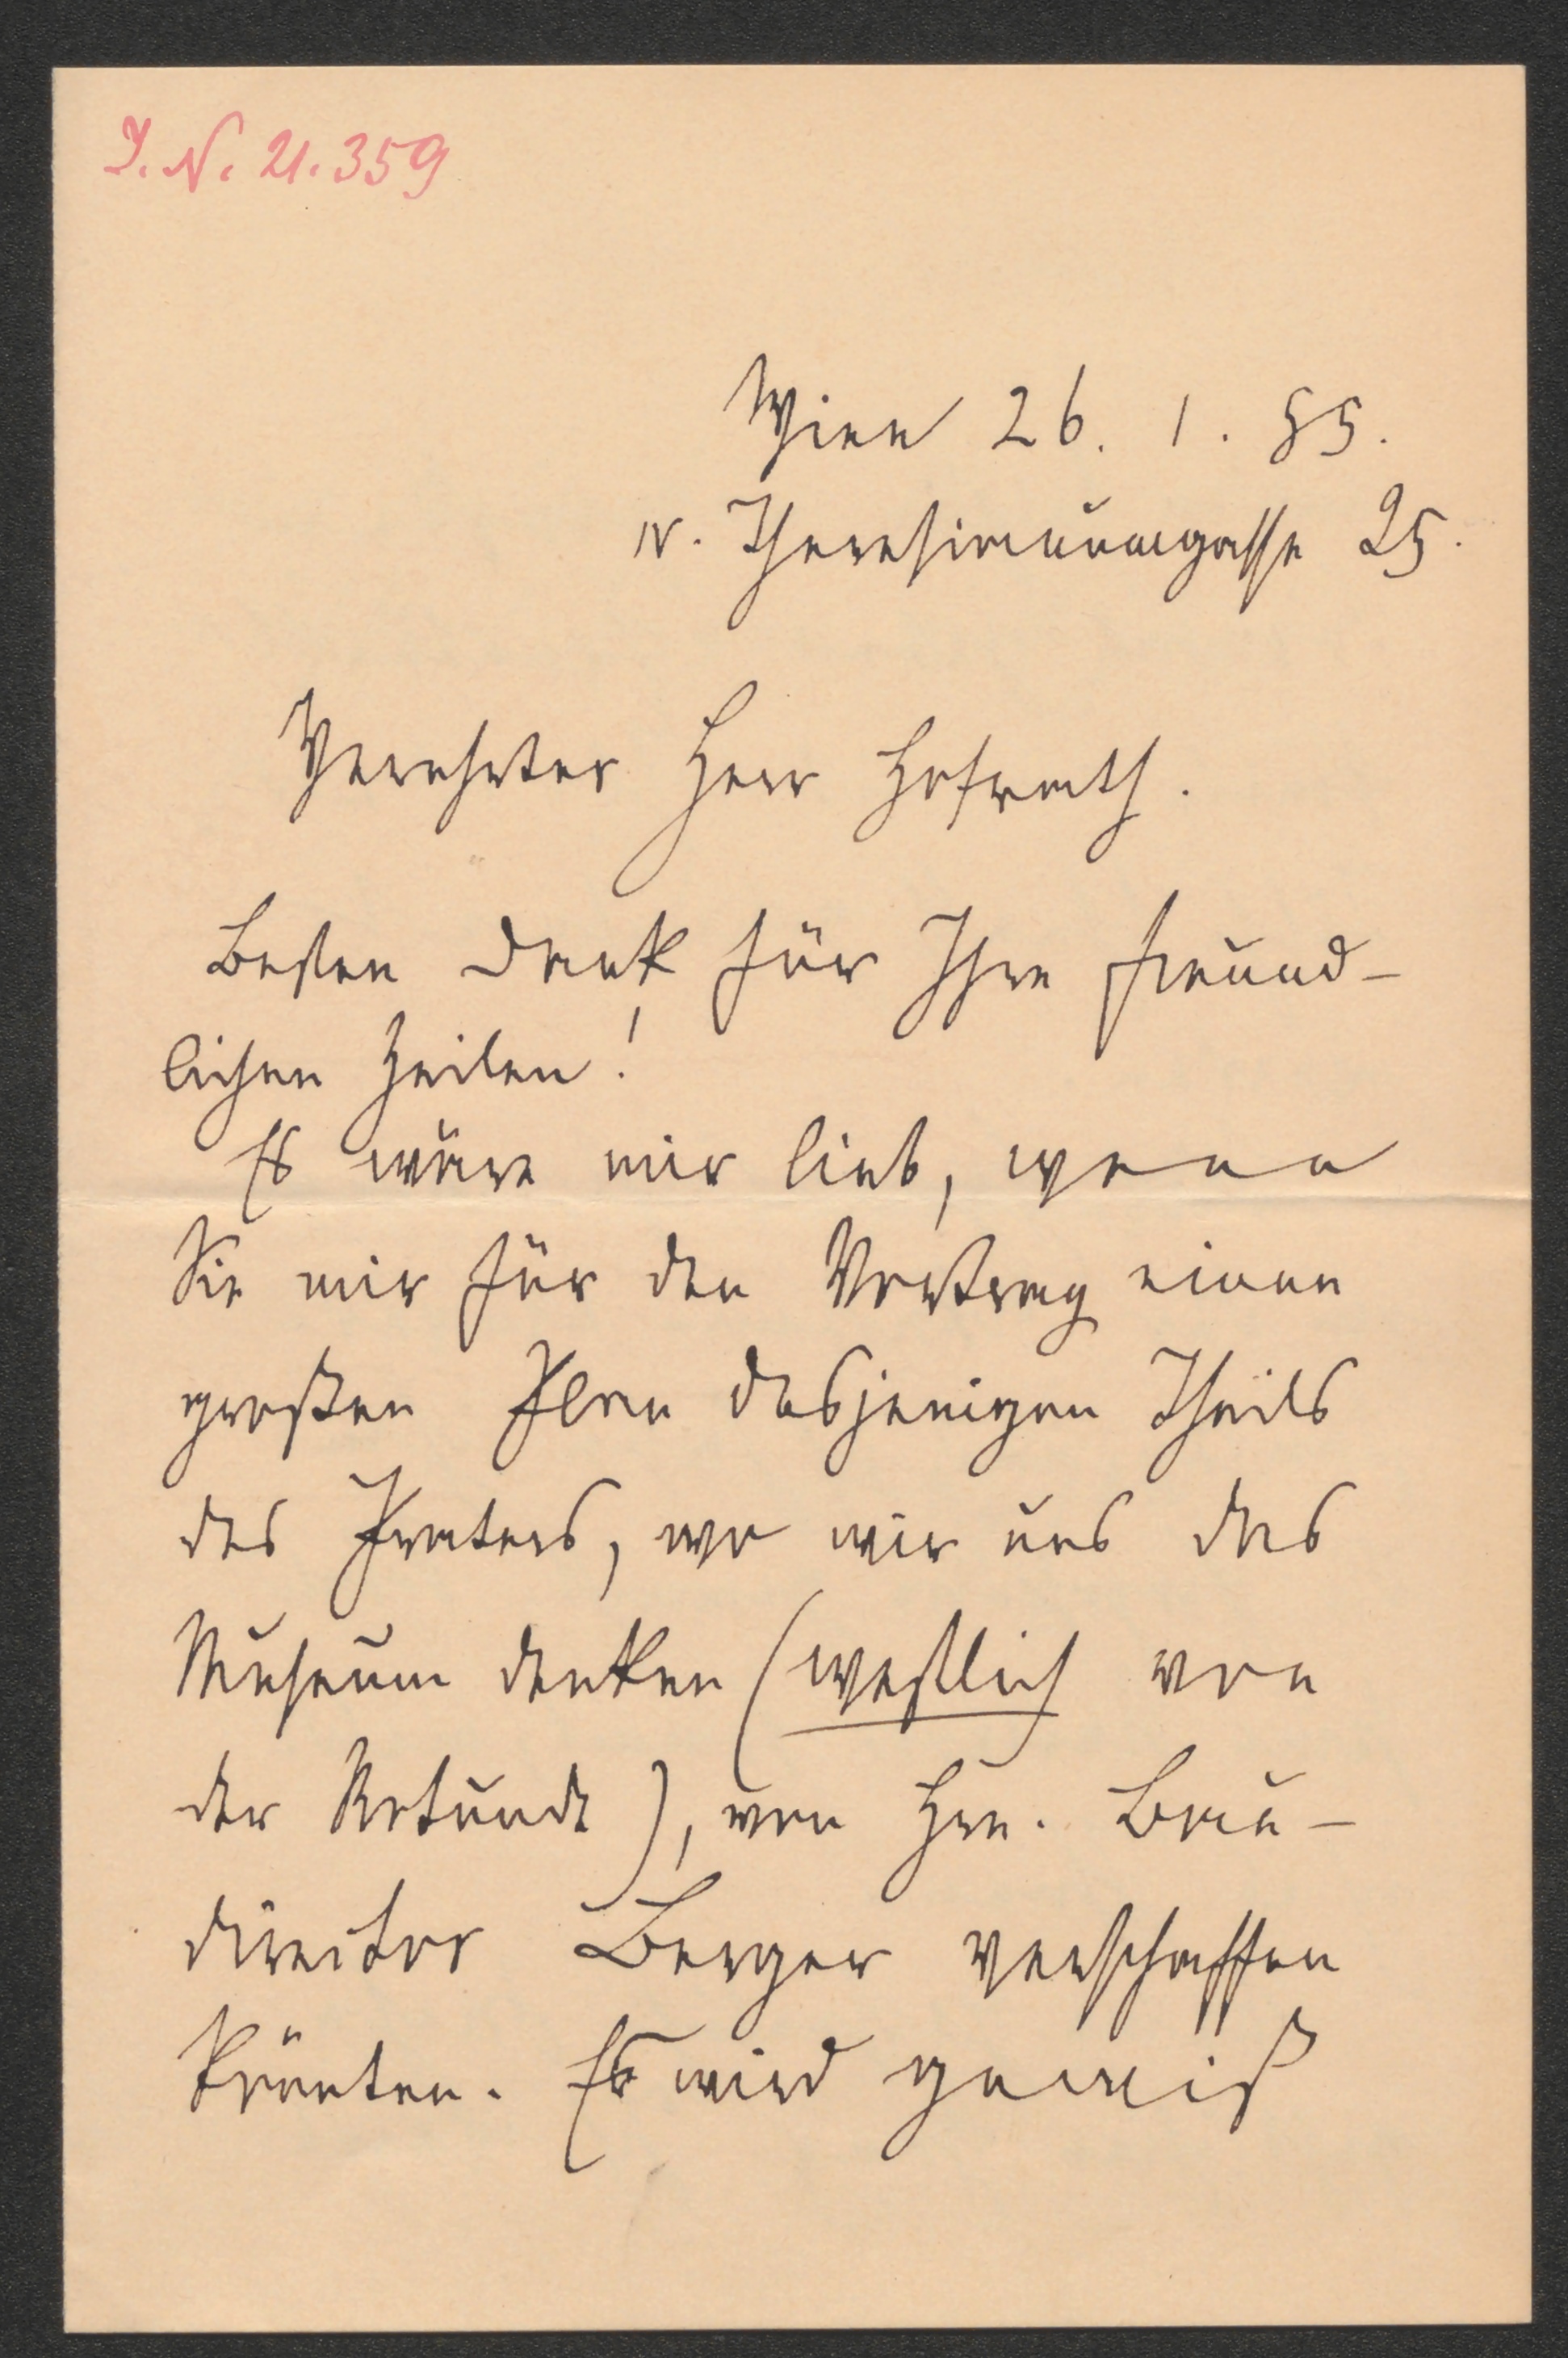 I. N. 21.359
Wien 26. 1. 85.
IV. Theresianumgasse 25.
Verehrter Herr Hofrath.
Besten Dank für Ihre freund-
lichen Zeilen!
Es wäre mir lieb, wenn
Sie mir für den Vortrag einen
großen Plan desjenigen Theils
des Praters, wo wir uns das
Museum denken (westlich von
der Rotunde), von Hrn. Bau-
director Berger verschaffen
könnten. Es wird gewiß